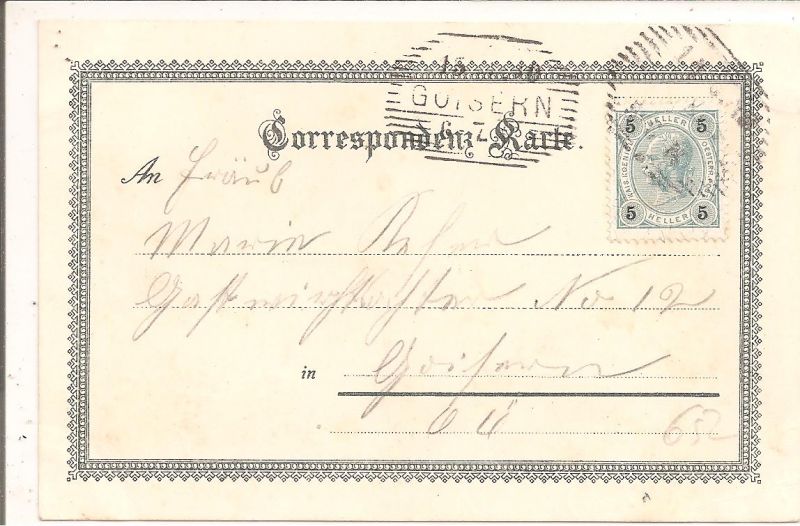 GOISERN
Correspondenz-Karte.
An Fräul
Marie
Gastwirthstochter No 12
in Goisern
OÖ 62
5 HELLER 5
KAIS. KOENIGL. OESTERR.
5 HELLER 5